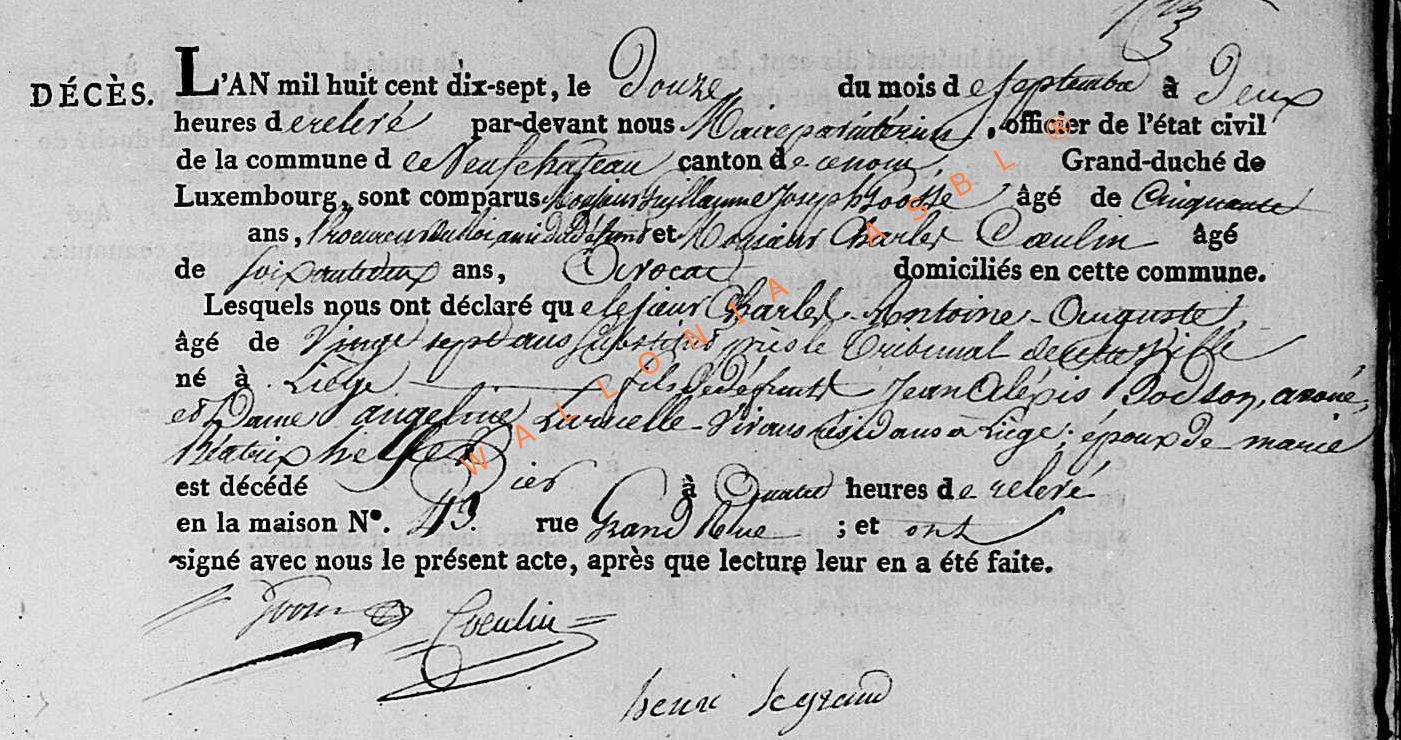 13
DÉCÈS. L'AN mil huit cent dix-sept, le Douze du mois de septembre à Deux
heures de relevé par-devant nous Maire par intérim, officier de l'état civil
de la commune de Neufchateau canton de ce nom, Grand-duché de
Luxembourg, sont comparus Monsieur Guillaume Joseph Goosse âgé de Cinquante
ans, Procureur du Roi, ami du défunt et Monsieur Charles Coeulin âgé
de soixante deux ans, Avocat domiciliés en cette commune.
Lesquels nous ont déclaré que le sieur Charles Antoine Auguste
âgé de Vingt sept ans substitut près le Tribunal de cette Ville
né à Liège fils de défunt Jean Alexis Bodson, avoué,
et Dame angeline Vivant résidans à Liège; époux de marie
Béatrix
est décédé hier à Quatre heures de relevé
en la maison N°. 43. rue Grand Rue ; et ont
signé avec nous le présent acte, après que lecture leur en a été faite.
Coeulin
henri legrand
WALLONIA ASBL ®